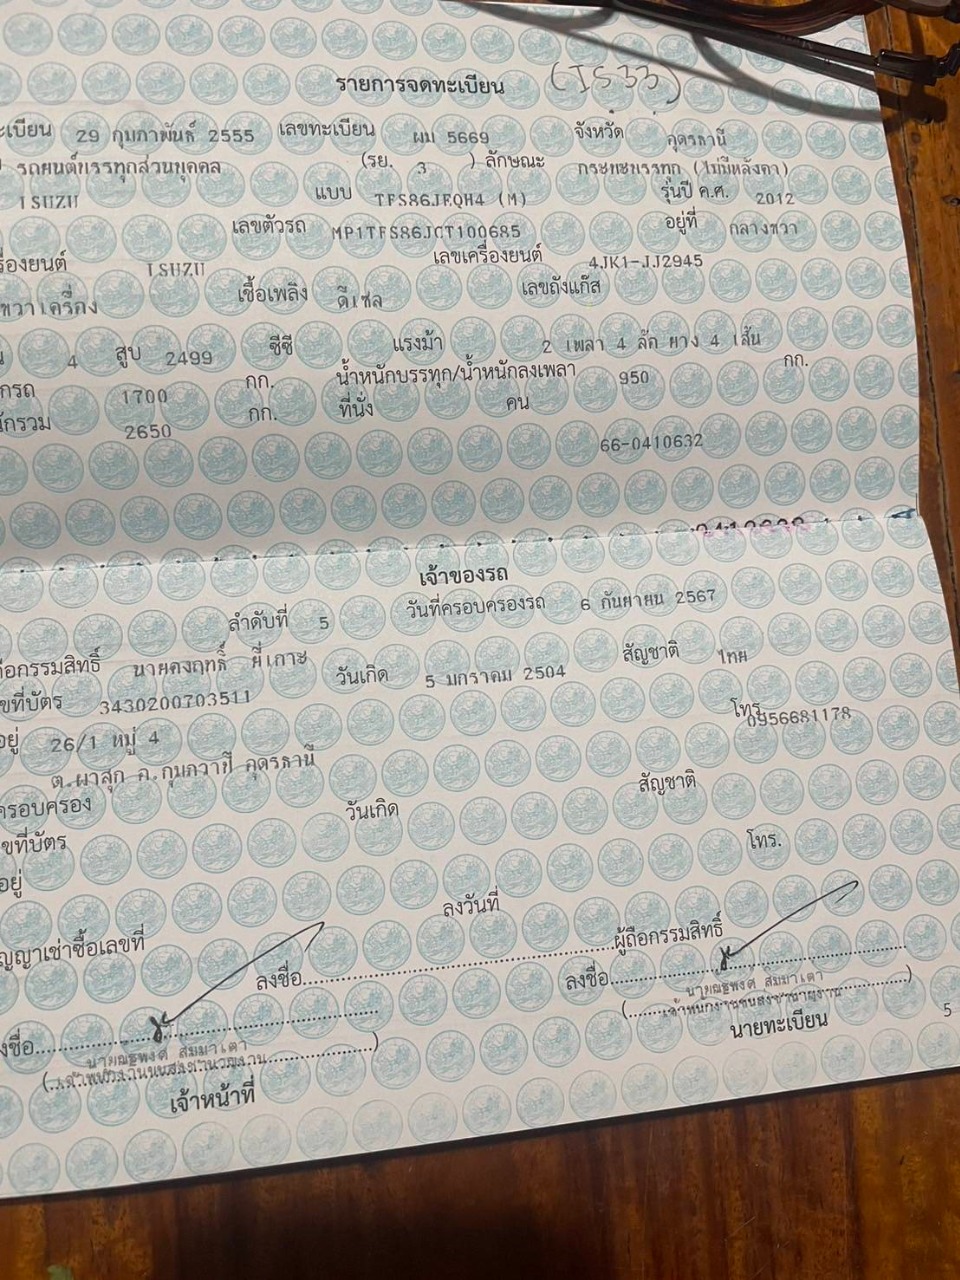 รายการจดทะเบียน (IS33)
ะเบียน 29 กุมภาพันธ์ 2555 เลขทะเบียน ผม 5669 จังหวัด อุดรธานี
รถยนต์บรรทุกส่วนบุคคล (รย. 3 ) ลักษณะ กระบะบรรทุก (ไม่มีหลังคา)
ISUZU แบบ TFS86JEQH4 (M) รุ่นปี ค.ศ. 2012
เลขตัวรถ MP1TFS86JCT100685 อยู่ที่ กลางขวา
ื่องยนต์ ISUZU เลขเครื่องยนต์ 4JK1-JJ2945
ขวาเครื่อง เชื้อเพลิง ดีเซล เลขถังแก๊ส
4 สูบ 2499 ซีซี แรงม้า 2 เพลา 4 ล้อ ยาง 4 เส้น
กรถ 1700 กก. น้ำหนักบรรทุก/น้ำหนักลงเพลา 950 กก.
ักรวม 2650 กก. ที่นั่ง คน
66-0410632
เจ้าของรถ
ลำดับที่ 5 วันที่ครอบครองรถ 6 กันยายน 2567
ถือกรรมสิทธิ์ นายคงฤทธิ์ ยี่เกาะ วันเกิด 5 มกราคม 2504 สัญชาติ ไทย
ขที่บัตร 3430200703511
อยู่ 26/1 หมู่ 4 โทร. 0956681178
ต.ผาสุก อ.กุมภวาปี อุดรธานี
ครอบครอง วันเกิด สัญชาติ
ขที่บัตร
อยู่ โทร.
ญญาเช่าซื้อเลขที่ ลงวันที่
ลงชื่อ ผู้ถือกรรมสิทธิ์
งชื่อ ลงชื่อ
นายณฐพงศ์ สัมมาเตา นายณฐพงศ์ สัมมาเตา
(เจ้าพนักงานขนส่งชำนาญงาน) (เจ้าพนักงานขนส่งชำนาญงาน)
เจ้าหน้าที่ นายทะเบียน
5